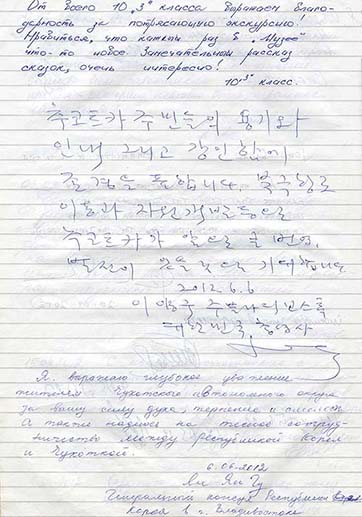 От всего 10 "З" класса выражаем благо-
дарность за потрясающую экскурсию!
Нравиться, что каждый раз в "Музее"
что-то новое. Замечательный рассказ
сказок, очень интересно!
10"З" класс.
추코트카 주민들의 용기와
인내 그리고 강인함에
존경을 표합니다. 북극항로
이용과 자원개발 등으로
추코트카가 앞으로 큰 번영,
발전이 있을 것으로 기대합니다
2012. 6. 6
이양구 주블라디보스톡
대한민국 총영사
Я выражаю глубокое уважение
жителям Чукотского автономного округа
за вашу силу духа, терпение и смелость
А также надеюсь на тесное сотруд-
ничество между республикой Корея
и Чукоткой.
6.06.2012
Ли Ян Гу
Генеральный консул Республики
Корея в г. Владивостоке